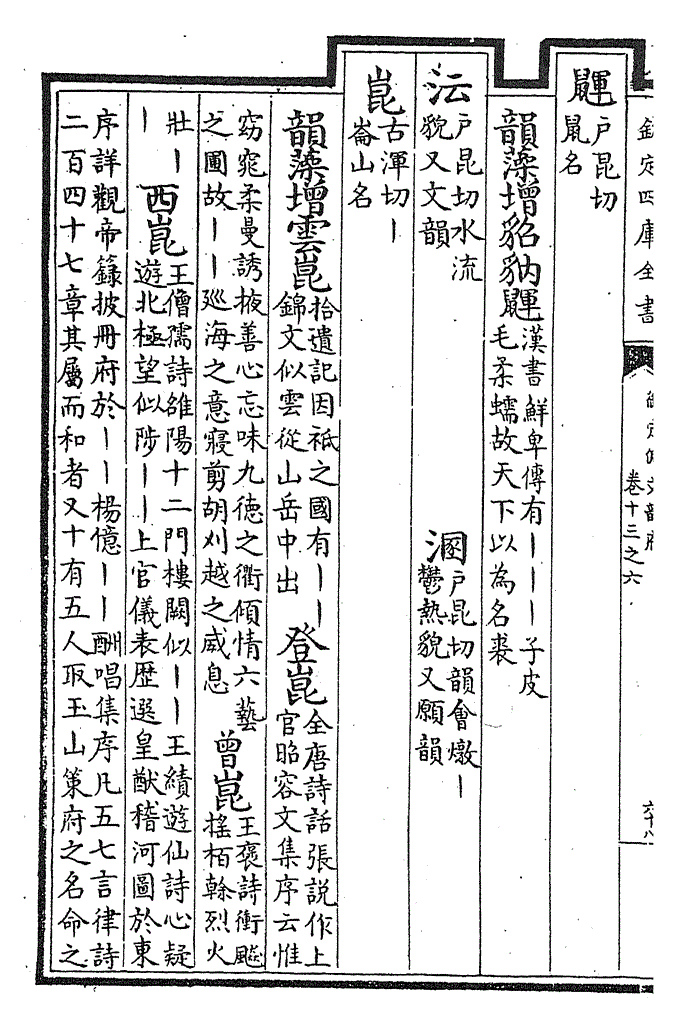 欽定四庫全書
御定佩文韻府
卷十三之六
六十八
鼲戶昆切
鼠名
韻藻增貂豽鼲漢書鮮卑傳有丨丨丨子皮
毛柔蠕故天下以為名裘
沄戶昆切水流
貌又文韻
溷戶昆切韻會燉丨
鬱熱貌又願韻
崑古渾切丨
崙山名
韻藻增雲崑拾遺記因祗之國有丨丨
錦文似雲從山岳中出
登崑全唐詩話張說作上
官昭容文集序云惟
窈窕柔曼誘掖善心忘味九德之衢傾情六藝
之圃故丨丨巡海之意寢剪胡刈越之威息
曾崑王褒詩衝飈
搖栢榦烈火
壯丨
丨
西崑王僧孺詩雒陽十二門樓闕似丨丨王績遊仙詩心疑
遊北極望似陟丨丨上官儀表歴選皇猷稽河圖於東
序詳觀帝籙披冊府於丨丨楊億丨丨酬唱集序凡五七言律詩
二百四十七章其屬而和者又十有五人取玉山策府之名命之